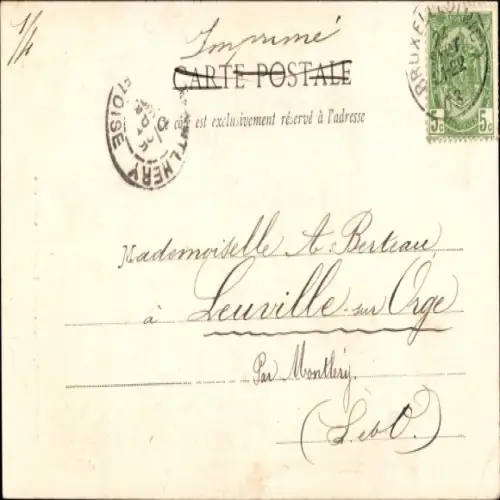 1/4
Imprimé
CARTE POSTALE
Ce côté est exclusivement réservé à l'adresse
BRUXELLES
5c 5c
MONTLHÉRY
OISE
Mademoiselle A. Berteau
à Leuville-sur Orge
Par Montlery.
(S. et O.)